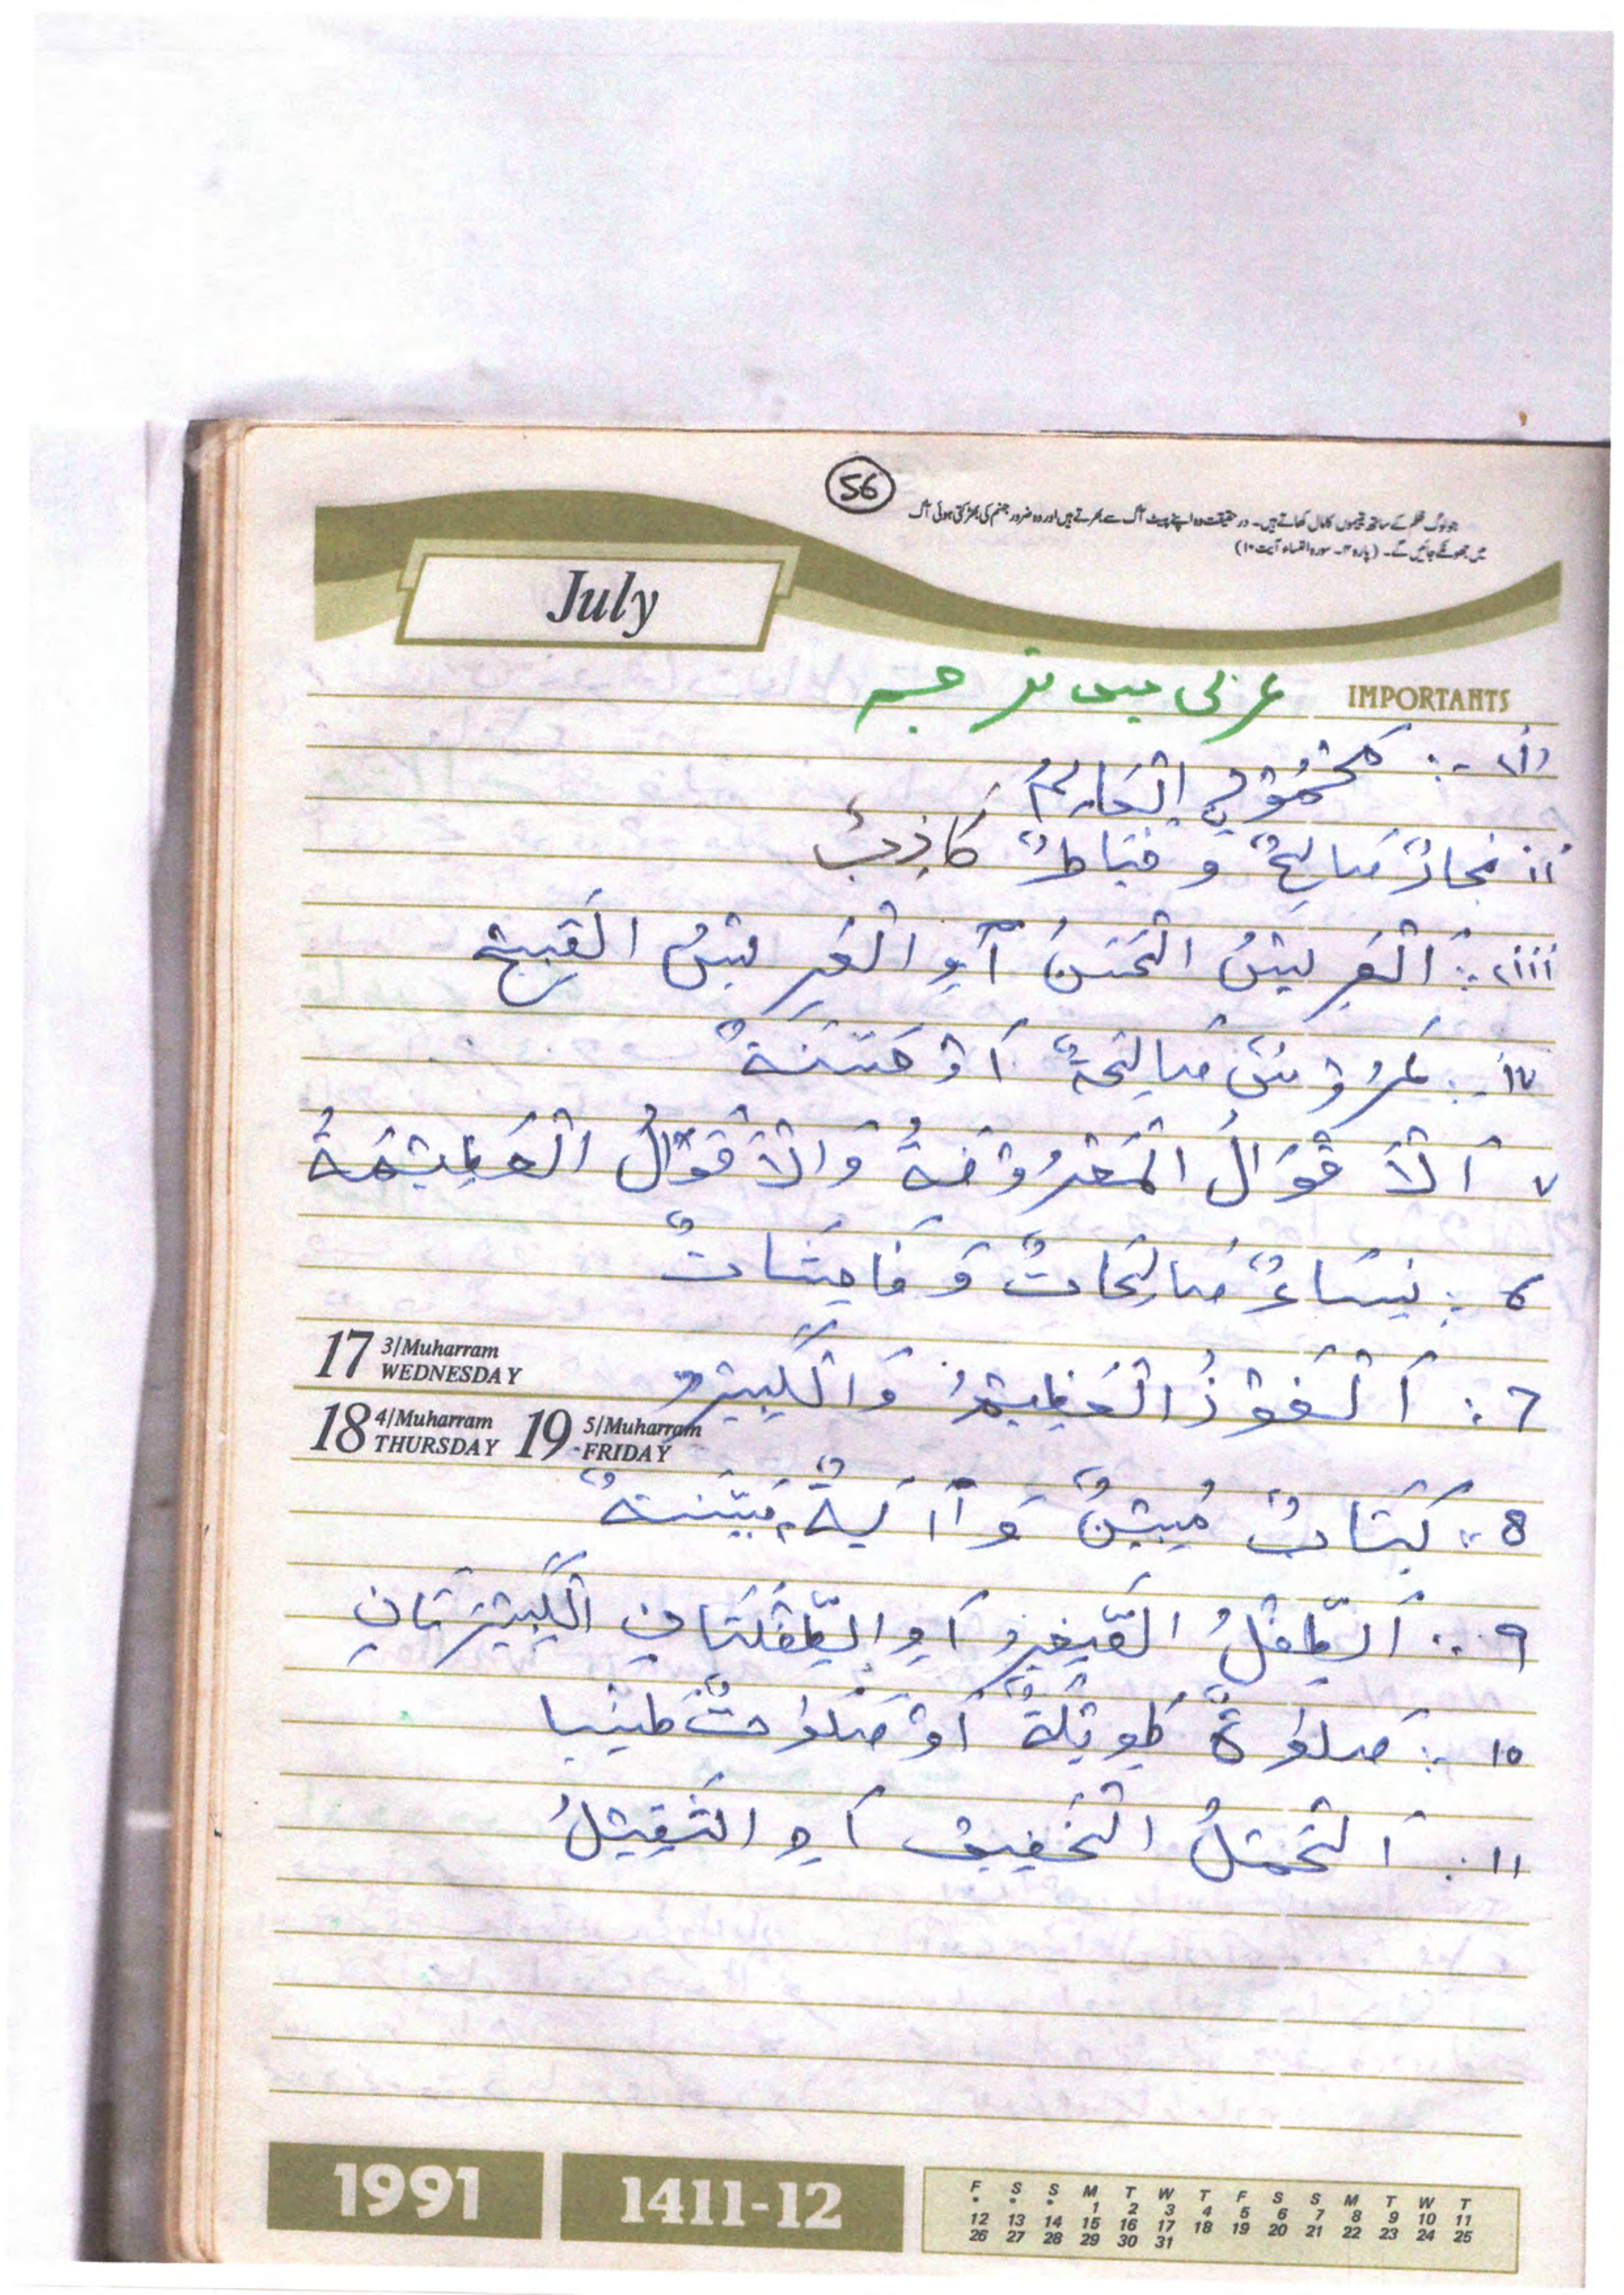 56
جو لوگ ظلم کے ساتھ یتیموں کا مال کھاتے ہیں۔ درحقیقت وہ اپنے پیٹ آگ سے بھرتے ہیں اور وہ ضرور جہنم کی بھڑکتی ہوئی آگ
میں جھونکے جائیں گے۔ (پارہ ۴۔ سورہ النساء آیت ۱۰)
July
عربی میں ترجمہ
IMPORTANTS
(i) -: مَحْمُوْدُ نِ الْعَالِمُ
ii نجارٌ صَالِحٌ و خیَاطٌ کَاذِبٌ
iii: اَلْعَرِیْسُ الْحَسَنُ اَوِ الْعَرِیْسُ الْقَبِیْح
iv -: عَرُوْسٌ صَالِحَةٌ اَوْ حَسَنَةٌ
v اَلْاَقْوَالُ الْمَعْرُوْفَةُ وَالْاَقْوَالُ الْعَظِیْمَةُ
6: نِسَاءٌ صَالِحَاتٌ وَ فَاحِشَاتٌ
17 3/Muharram WEDNESDAY
7: اَلْفَوْزُ الْعَظِیْمُ وَالْکَبِیْرُ
18 4/Muharram THURSDAY 19 5/Muharram FRIDAY
8: کِتَابٌ مُبِیْنٌ وَ آیَةٌ بَیِّنَةٌ
9: اَلطِّفْلُ الصَّغِیْرُ اَوِ الطِّفْلَتَانِ الْکَبِیْرَتَانِ
10: صَلوٰةٌ طَوِیْلَةٌ اَوْ صَلَوٰتٌ طَیِّبا
11: اَلْحَمْلُ الْخَفِیْف اَوِ الثَّقِیْلُ
1991
1411-12
F S S M T W T F S S M T W T
* * * 1 2 3 4 5 6 7 8 9 10 11
12 13 14 15 16 17 18 19 20 21 22 23 24 25
26 27 28 29 30 31